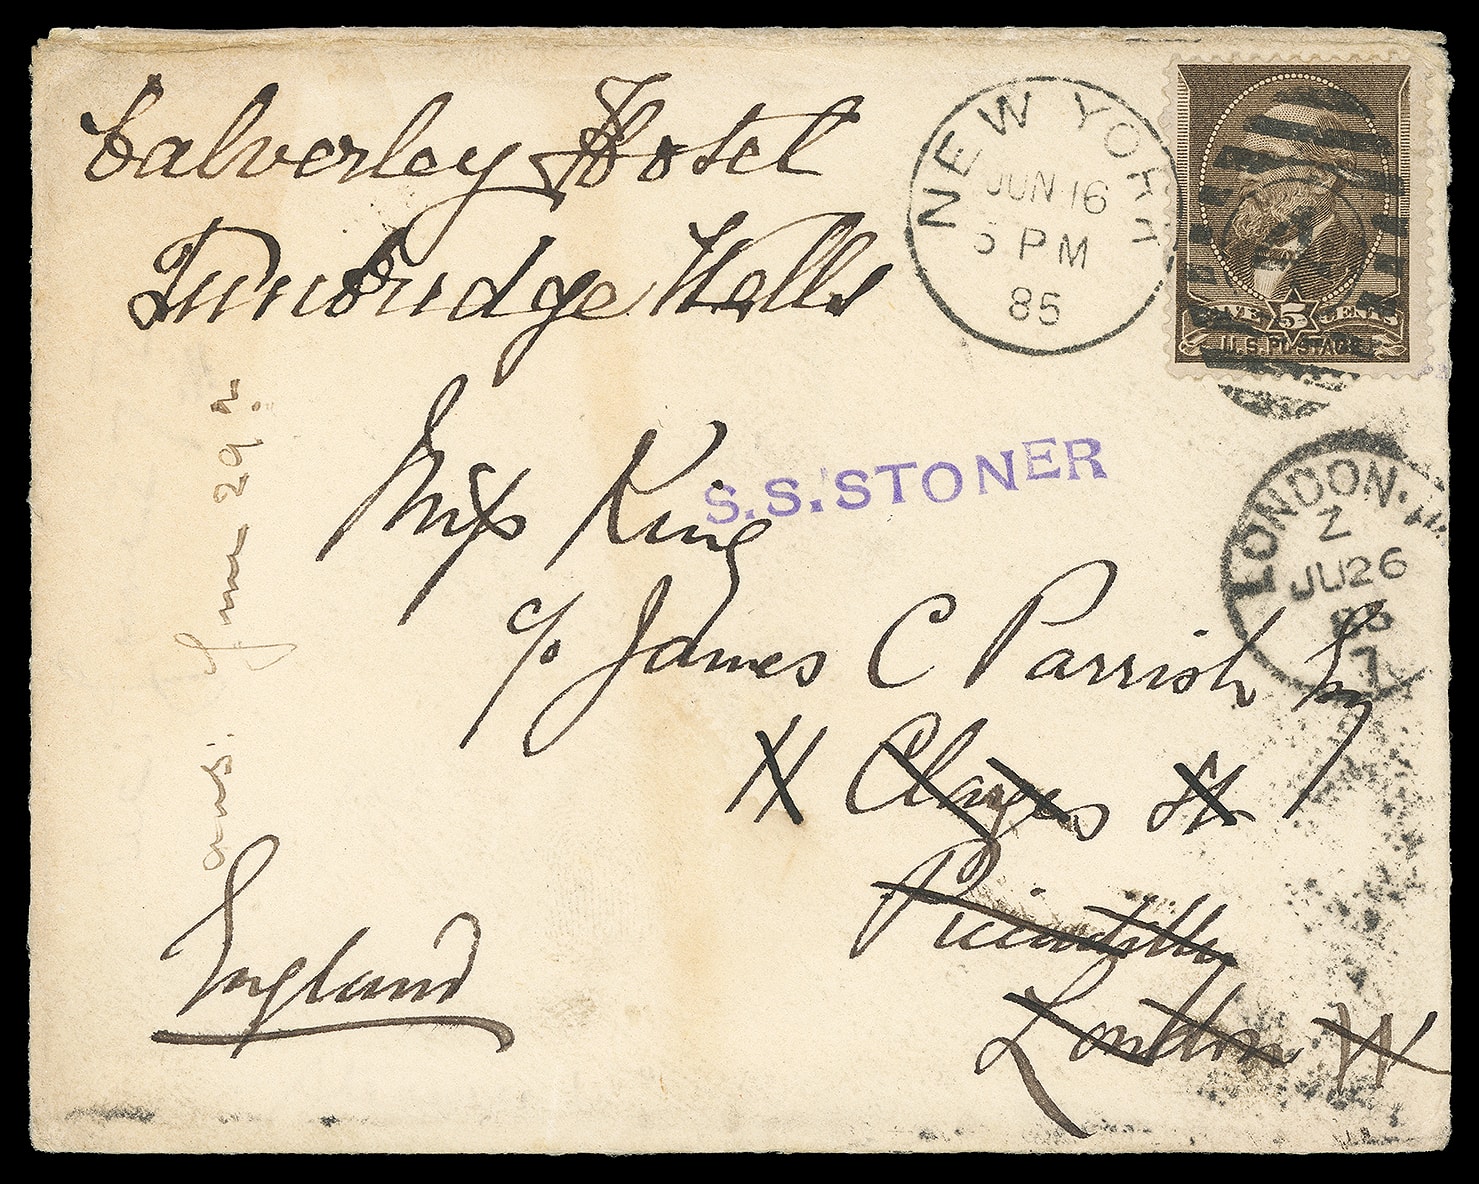 Calverley Hotel
Tunbridge Wells
NEW YORK
JUN 16
5 PM
85
FIVE 5 CENTS
U.S. POSTAGE
S.S. STONER
LONDON. W.
Z
JU 26
85
7
Miss King
c/o James C Parrish Esq
Clarges St
Piccadilly
London W
England
ans: June 29